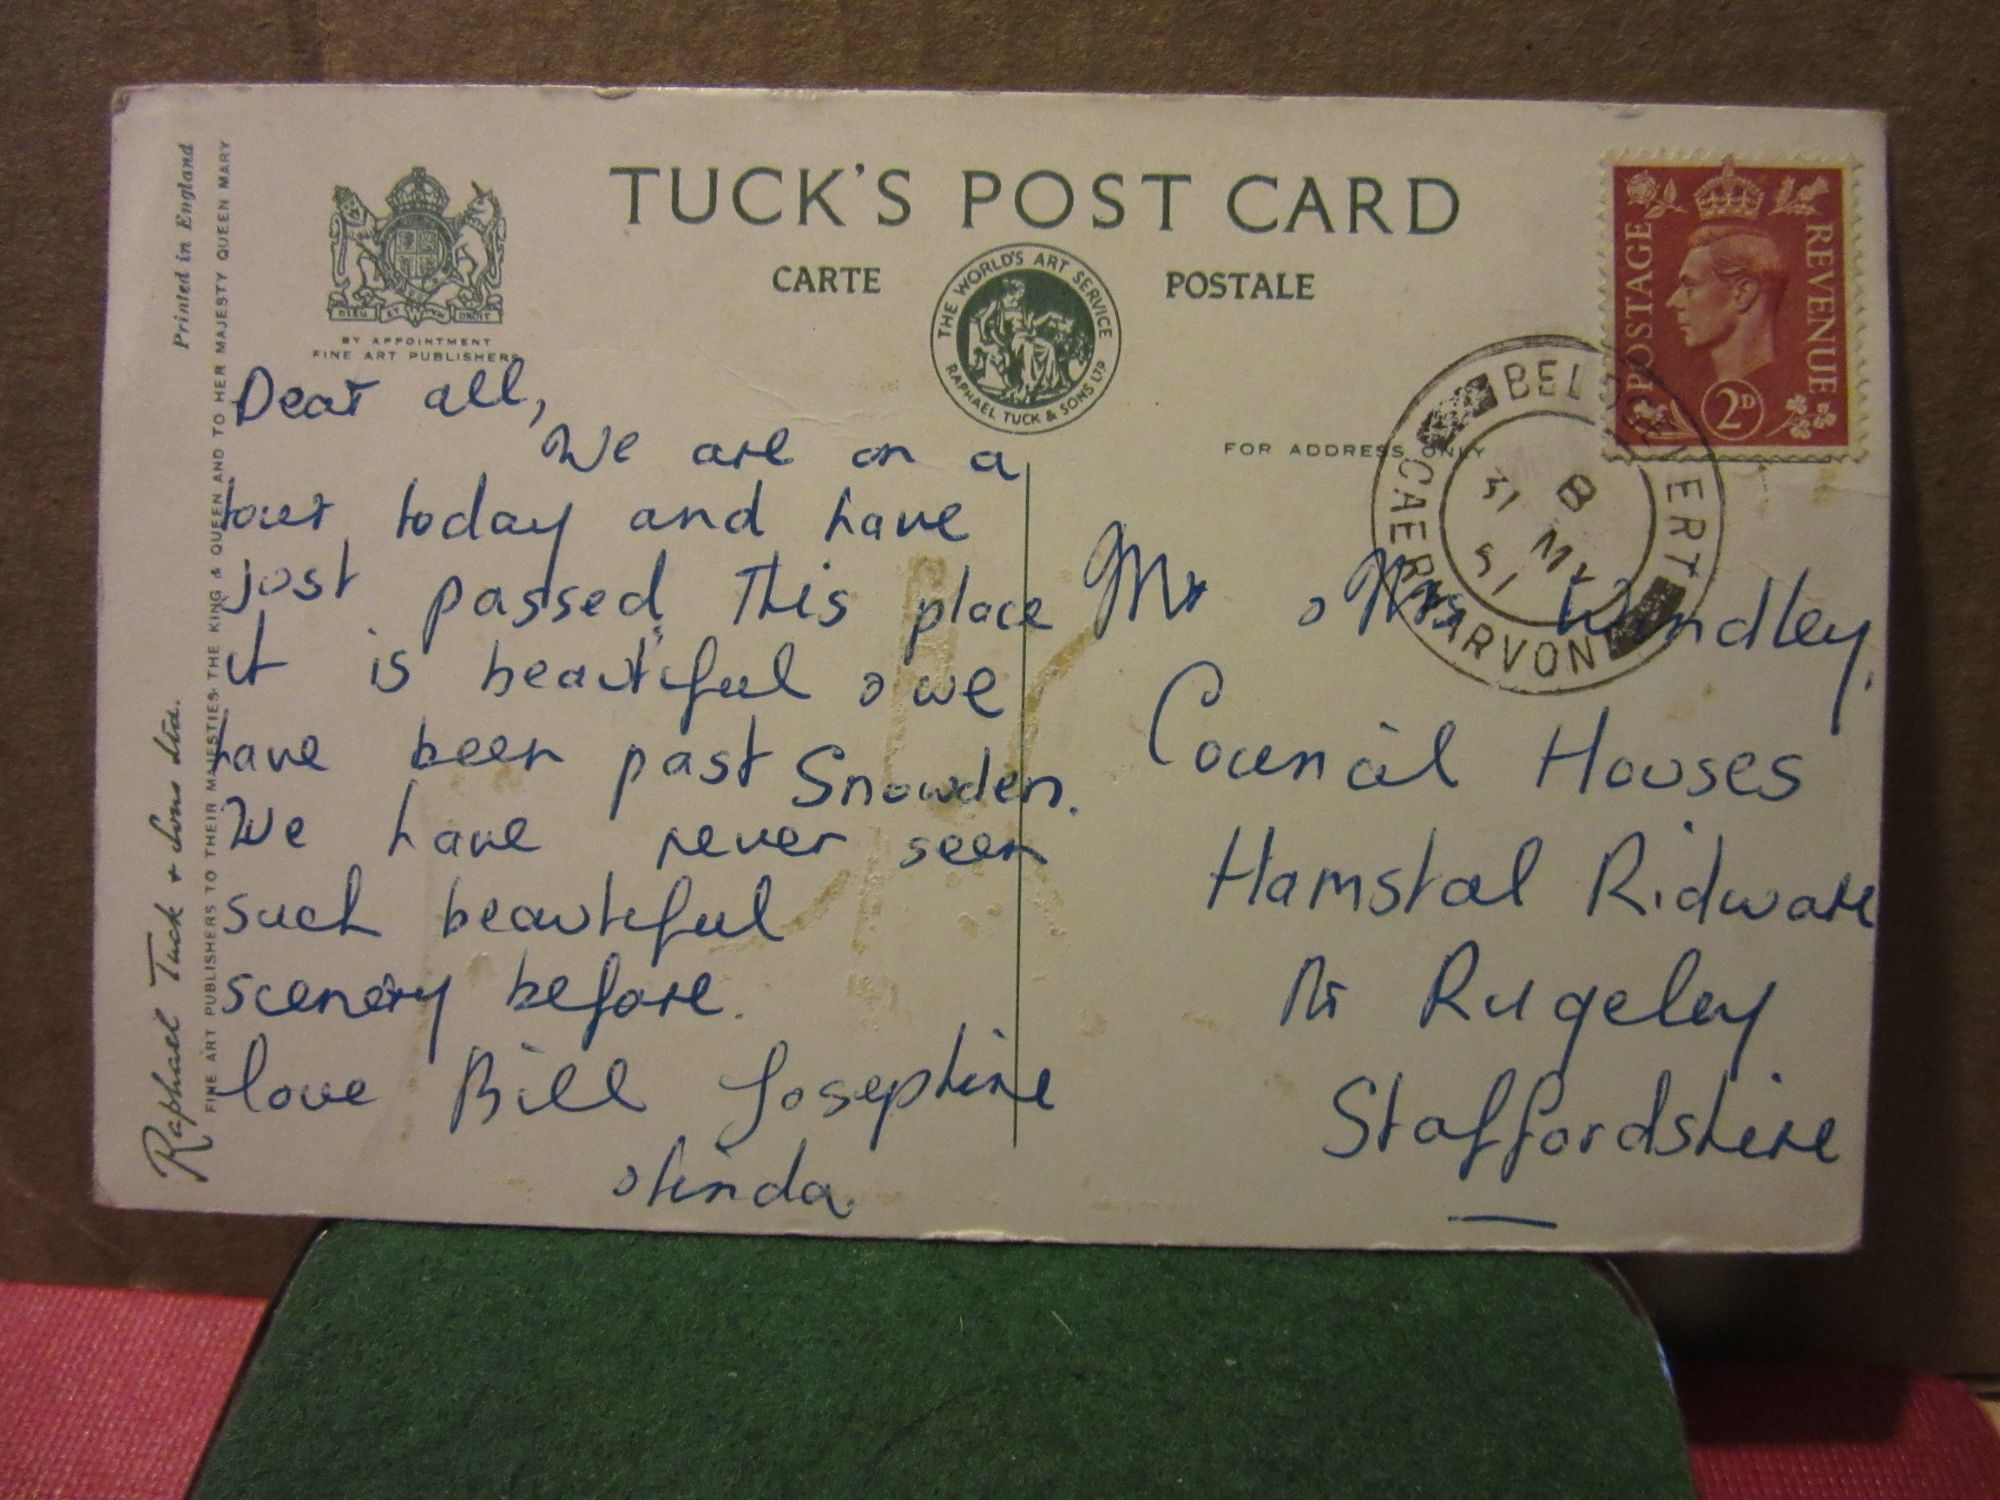 TUCK'S POST CARD
CARTE POSTALE
THE WORLD'S ART SERVICE
RAPHAEL TUCK & SONS LTD
DIEU ET MON DROIT
BY APPOINTMENT
FINE ART PUBLISHERS
Printed in England
FINE ART PUBLISHERS TO THEIR MAJESTIES THE KING & QUEEN AND TO HER MAJESTY QUEEN MARY
Raphael Tuck & Sons Ltd.
FOR ADDRESS ONLY
POSTAGE
REVENUE
2D
CAERNARVON
B
31 MY
51
Dear all,
We are on a
tour today and have
just passed "This place
it is beautiful & we
have been past Snowden.
We have never seen
such beautiful
scenery before.
love Bill Josephine
& Linda.
Mr & Mrs Windley,
Council Houses
Hamstal Ridware
Nr Rugeley
Staffordshire